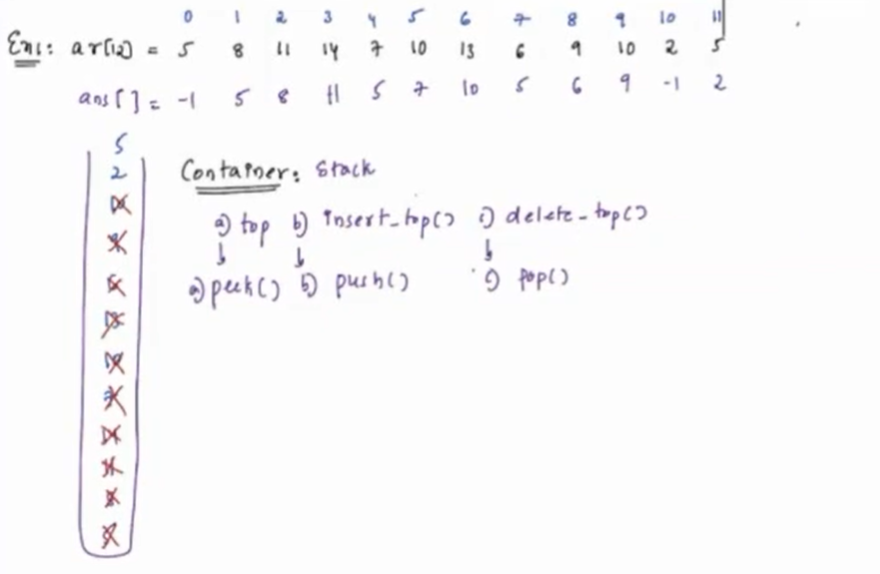 0 1 2 3 4 5 6 7 8 9 10 11
Ex1: ar[12] = 5 8 11 14 7 10 13 6 9 10 2 5
ans[] = -1 5 8 11 5 7 10 5 6 9 -1 2
5
2
Container: Stack
a) top b) insert_top() c) delete_top()
a) peek() b) push() c) pop()